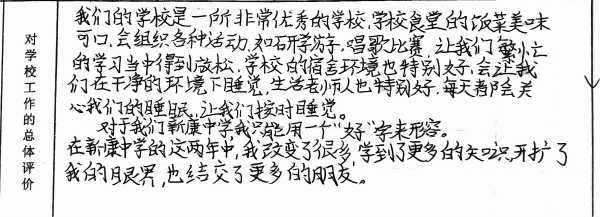 对学校工作的总体评价
我们的学校是一所非常优秀的学校,学校食堂的饭菜美味
可口,会组织各种活动,如研学游,唱歌比赛,让我们繁忙
的学习当中得到放松,学校的宿舍环境也特别好,会让我
们在干净的环境下睡觉,生活老师人也特别好,每天都会关
心我们的睡眠,让我们按时睡觉。
对于我们新康中学,我只能用一个"好"字来形容。
在新康中学的这两年中,我改变了很多,学到了更多的知识,开扩了
我的眼界,也结交了更多的朋友。